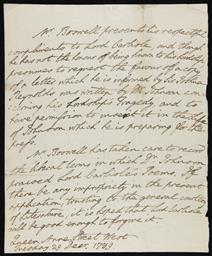 Mr. Boswell presents his respectful
compliments to Lord Carlisle, and though
he has not the honour of being known to his Lordship
presumes to request the favour of a copy
of a letter which he is informed by Sir Joshua
Reynolds was written by Dr. Johnson con-
cerning his Lordship's Tragedy, and to
have permission to insert it in the Life
of Johnson which he is preparing for the
press.
Mr. Boswell has taken care to record
the liberal terms in which Dr. Johnson
praised Lord Carlisle's Poems. If
there be any impropriety in the present
application, trusting to the general
of Literature, it is hoped that Lord Carlisle
will be good enough to forgive it.
Queen Anne Street West
Tuesday 29 Dec. 1789